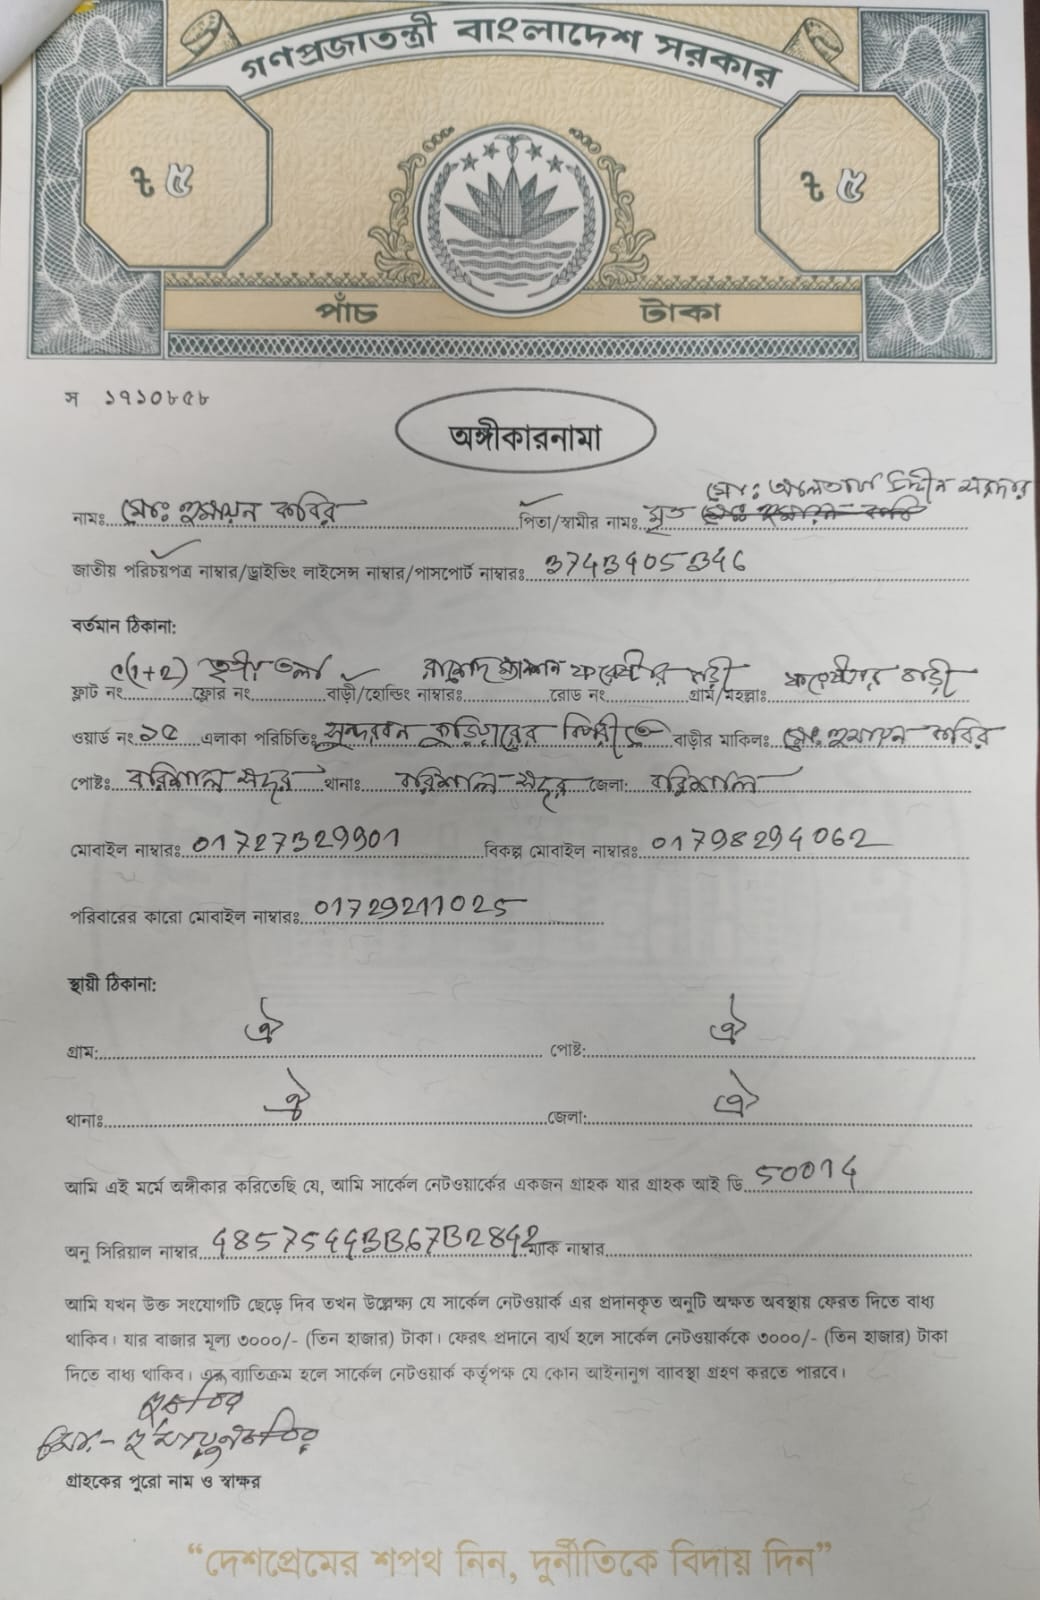 গণপ্রজাতন্ত্রী বাংলাদেশ সরকার
৳ ৫
৳ ৫
পাঁচ টাকা
স ১৭১০৮৫৮
অঙ্গীকারনামা
নামঃ মোঃ হুমায়ন কবির পিতা/স্বামীর নামঃ মৃত মোঃ আলতাফ উদ্দীন সরদার
জাতীয় পরিচয়পত্র নাম্বার/ড্রাইভিং লাইসেন্স নাম্বার/পাসপোর্ট নাম্বারঃ 3743905346
বর্তমান ঠিকানা:
c(1+2) রাশেদ ম্যানশন বাড়ী বাড়ী
ফ্লাট নং ফ্লোর নং বাড়ী/হোল্ডিং নাম্বারঃ রোড নং গ্রাম/মহল্লাঃ
ওয়ার্ড নং ১৫ এলাকা পরিচিতিঃ সুন্দরবন কুরিয়ারের বিপরীতে বাড়ীর মালিকঃ মোঃ হুমায়ন কবির
পোষ্টঃ বরিশাল সদর থানাঃ বরিশাল সদর জেলা: বরিশাল
মোবাইল নাম্বারঃ 01727329901 বিকল্প মোবাইল নাম্বারঃ 01798294062
পরিবারের কারো মোবাইল নাম্বারঃ 01729211025
স্থায়ী ঠিকানা:
গ্রাম: ঐ পোষ্ট: ঐ
থানাঃ ঐ জেলা: ঐ
আমি এই মর্মে অঙ্গীকার করিতেছি যে, আমি সার্কেল নেটওয়ার্কের একজন গ্রাহক যার গ্রাহক আই ডি 50014
অনু সিরিয়াল নাম্বার 48575443B67B2842 ম্যাক নাম্বার
আমি যখন উক্ত সংযোগটি ছেড়ে দিব তখন উল্লেক্ষ্য যে সার্কেল নেটওয়ার্ক এর প্রদানকৃত অনুটি অক্ষত অবস্থায় ফেরত দিতে বাধ্য
থাকিব। যার বাজার মূল্য ৩০০০/- (তিন হাজার) টাকা। ফেরৎ প্রদানে ব্যর্থ হলে সার্কেল নেটওয়ার্ককে ৩০০০/- (তিন হাজার) টাকা
দিতে বাধ্য থাকিব। এর ব্যাতিক্রম হলে সার্কেল নেটওয়ার্ক কর্তৃপক্ষ যে কোন আইনানুগ ব্যাবস্থা গ্রহণ করতে পারবে।
মোঃ- হুমায়ুন কবির
গ্রাহকের পুরো নাম ও স্বাক্ষর
“দেশপ্রেমের শপথ নিন, দুর্নীতিকে বিদায় দিন”